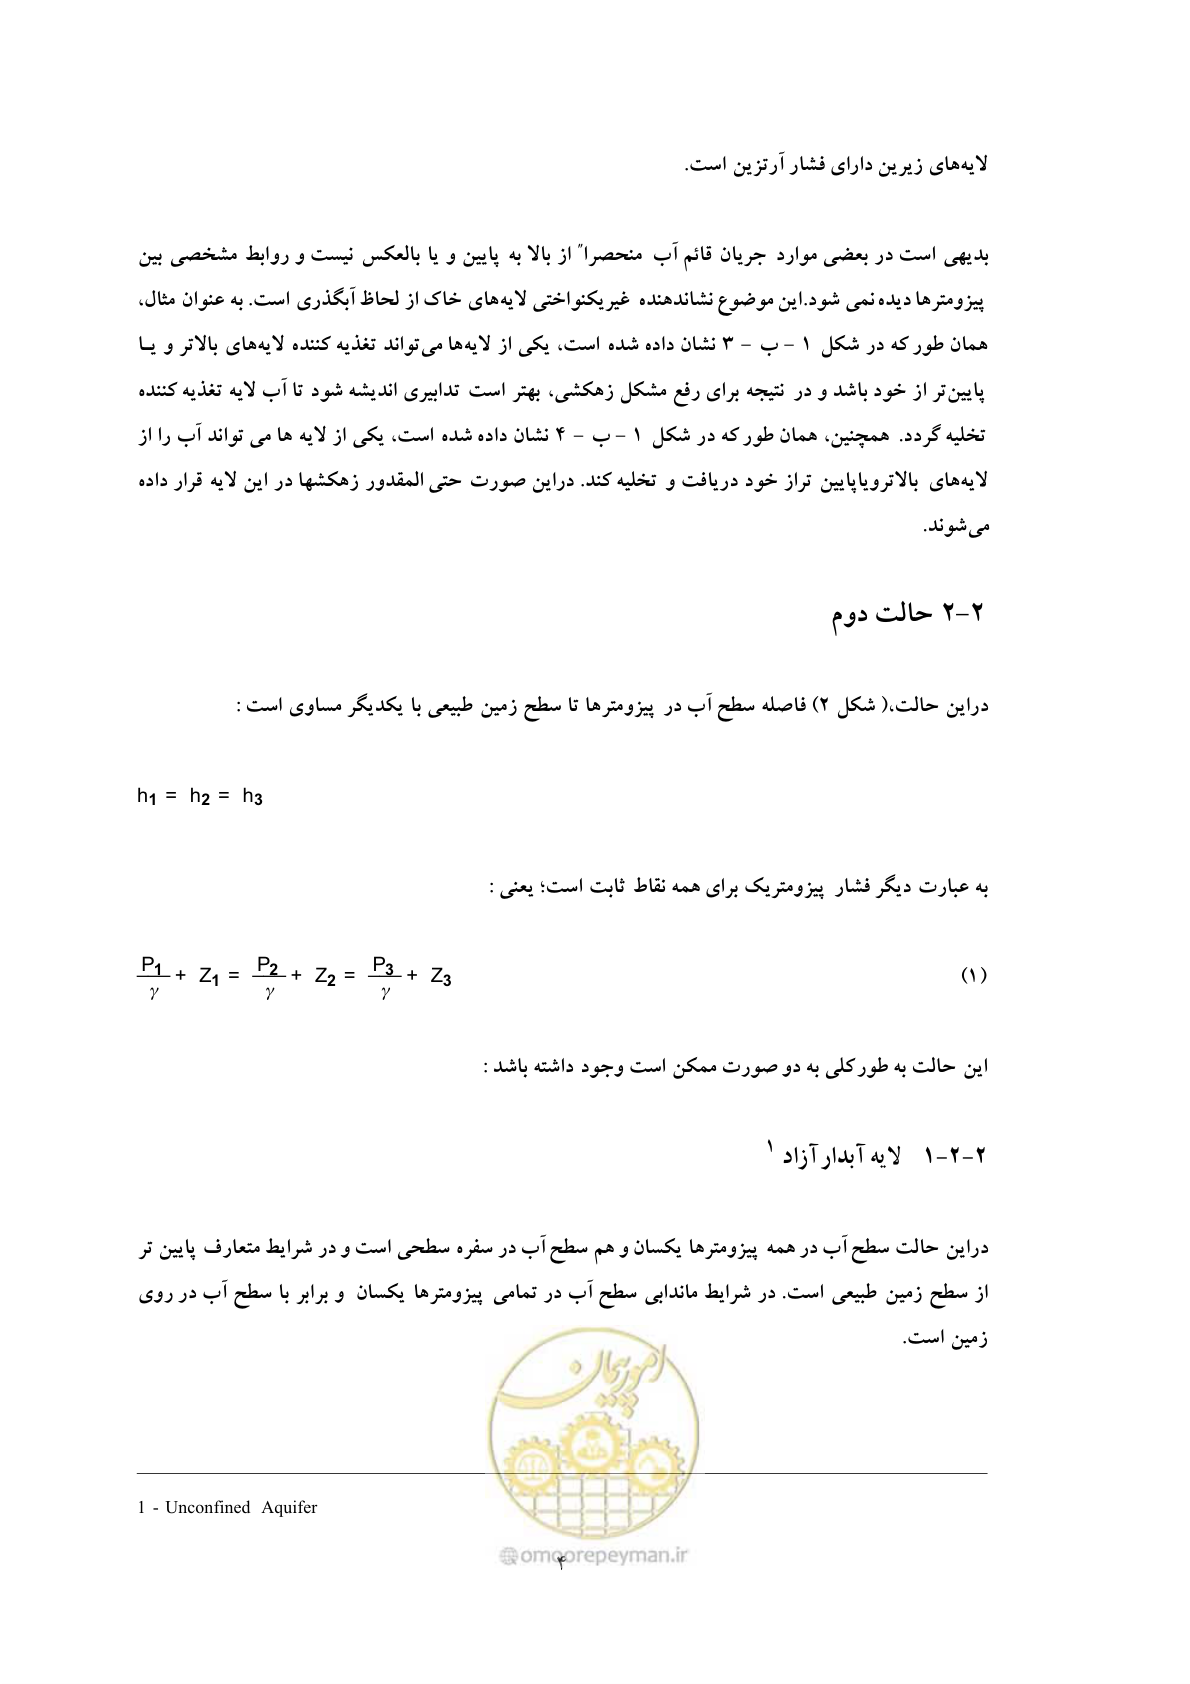 لایه‌های زیرین دارای فشار آرتزین است.
بدیهی است در بعضی موارد جریان قائم آب منحصرا" از بالا به پایین و یا بالعکس نیست و روابط مشخصی بین
پیزومترها دیده نمی شود.این موضوع نشاندهنده غیریکنواختی لایه‌های خاک از لحاظ آبگذری است. به عنوان مثال،
همان طور که در شکل ۱ – ب – ۳ نشان داده شده است، یکی از لایه‌ها می‌تواند تغذیه کننده لایه‌های بالاتر و یـا
پایین‌تر از خود باشد و در نتیجه برای رفع مشکل زهکشی، بهتر است تدابیری اندیشه شود تا آب لایه تغذیه کننده
تخلیه گردد. همچنین، همان طور که در شکل ۱ – ب – ۴ نشان داده شده است، یکی از لایه ها می تواند آب را از
لایه‌های بالاترویاپایین تراز خود دریافت و تخلیه کند. دراین صورت حتی المقدور زهکشها در این لایه قرار داده
می‌شوند.
۲-۲ حالت دوم
دراین حالت،( شکل ۲) فاصله سطح آب در پیزومترها تا سطح زمین طبیعی با یکدیگر مساوی است :
h1 = h2 = h3
به عبارت دیگر فشار پیزومتریک برای همه نقاط ثابت است؛ یعنی :
P1/γ + Z1 = P2/γ + Z2 = P3/γ + Z3 (۱)
این حالت به طورکلی به دو صورت ممکن است وجود داشته باشد :
۲-۲-۱ لایه آبدار آزاد ۱
دراین حالت سطح آب در همه پیزومترها یکسان و هم سطح آب در سفره سطحی است و در شرایط متعارف پایین تر
از سطح زمین طبیعی است. در شرایط ماندابی سطح آب در تمامی پیزومترها یکسان و برابر با سطح آب در روی
زمین است.
امور پیمان
1 - Unconfined Aquifer
@omoorepeyman.ir
۴